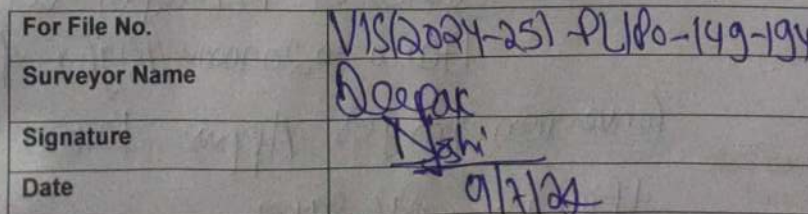 For File No. VIS(2024-25)-PL180-149-194
Surveyor Name Deepak
Signature Joshi
Date 9/7/24